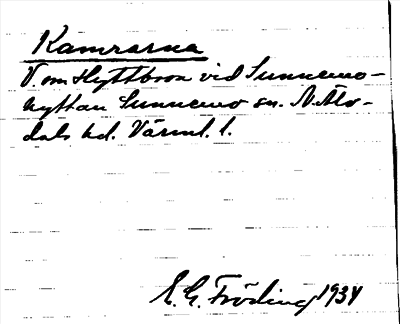 Kamrarna
V. om Hyttbron vid Sunnemo-
hyttan Sunnemo sn. N. Älv-
dals hd. Värml. l.
E. G. Fröding 1934